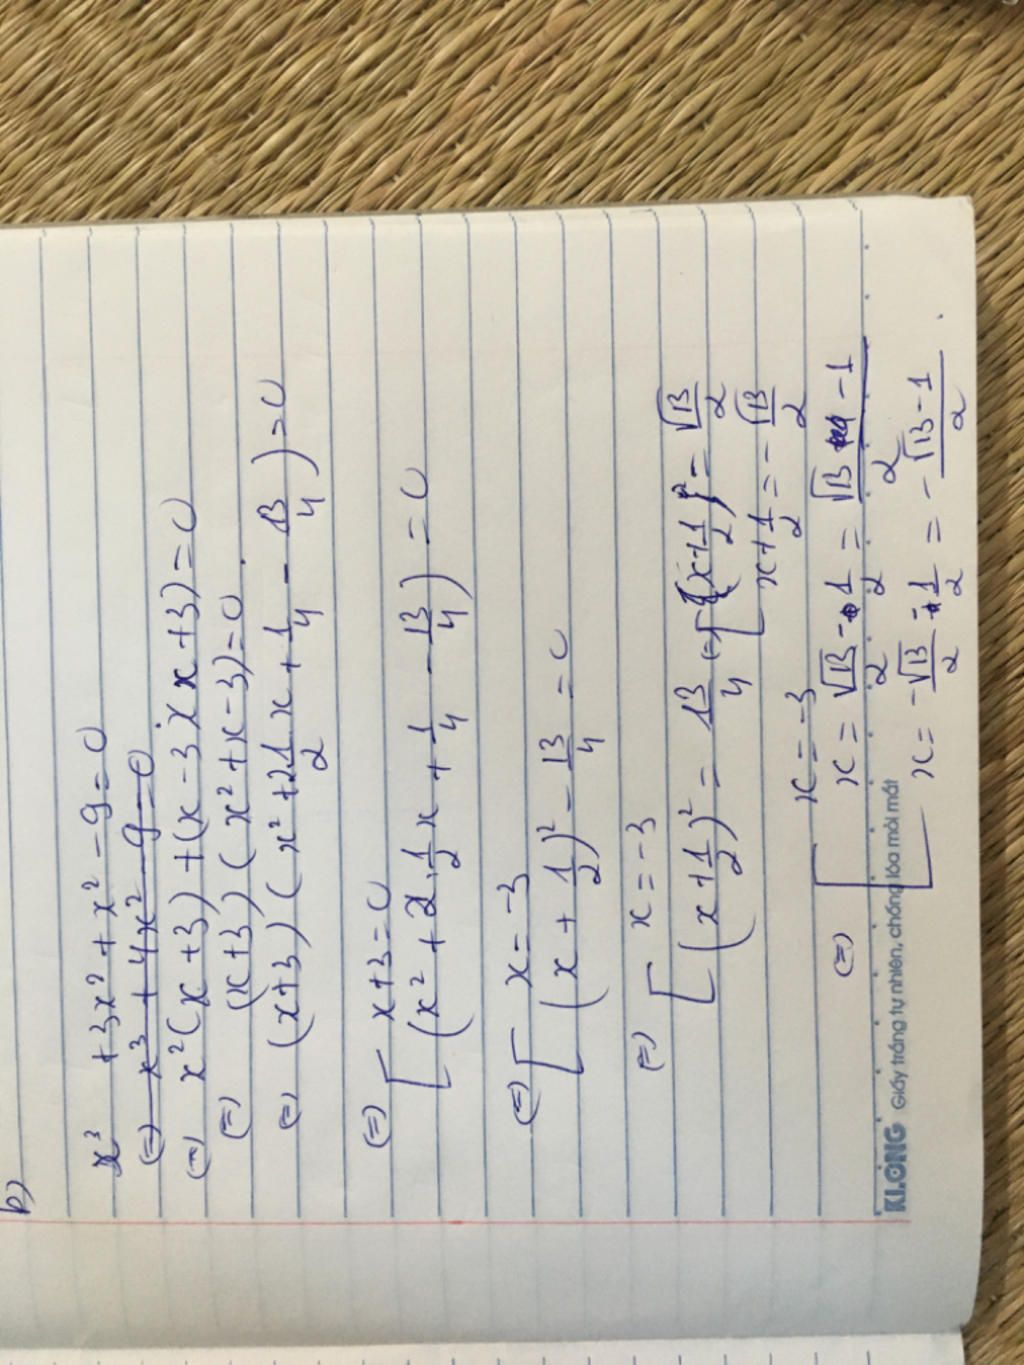 b)
x³ + 3x² + x² - 9 = 0
(=) x³ + 4x² - 9 = 0
(=) x²(x+3) + (x-3)(x+3) = 0
(=) (x+3)(x²+x-3) = 0.
(=) (x+3)(x² + 2 1/2 x + 1/4 - 13/4) = 0
(=) [ x+3 = 0
(x² + 2.1/2 x + 1/4 - 13/4) = 0
(=) [ x = -3
(x + 1/2)² - 13/4 = 0
(=) [ x = -3
(x + 1/2)² = 13/4 (=) [ (x+1/2) = √13/2
x + 1/2 = -√13/2
(=) [ x = -3
x = √13/2 - 1/2 = √13 - 1/2
x = -√13/2 - 1/2 = -√13-1/2.
KLONG Giấy trắng tự nhiên, chống lóa mỏi mắt